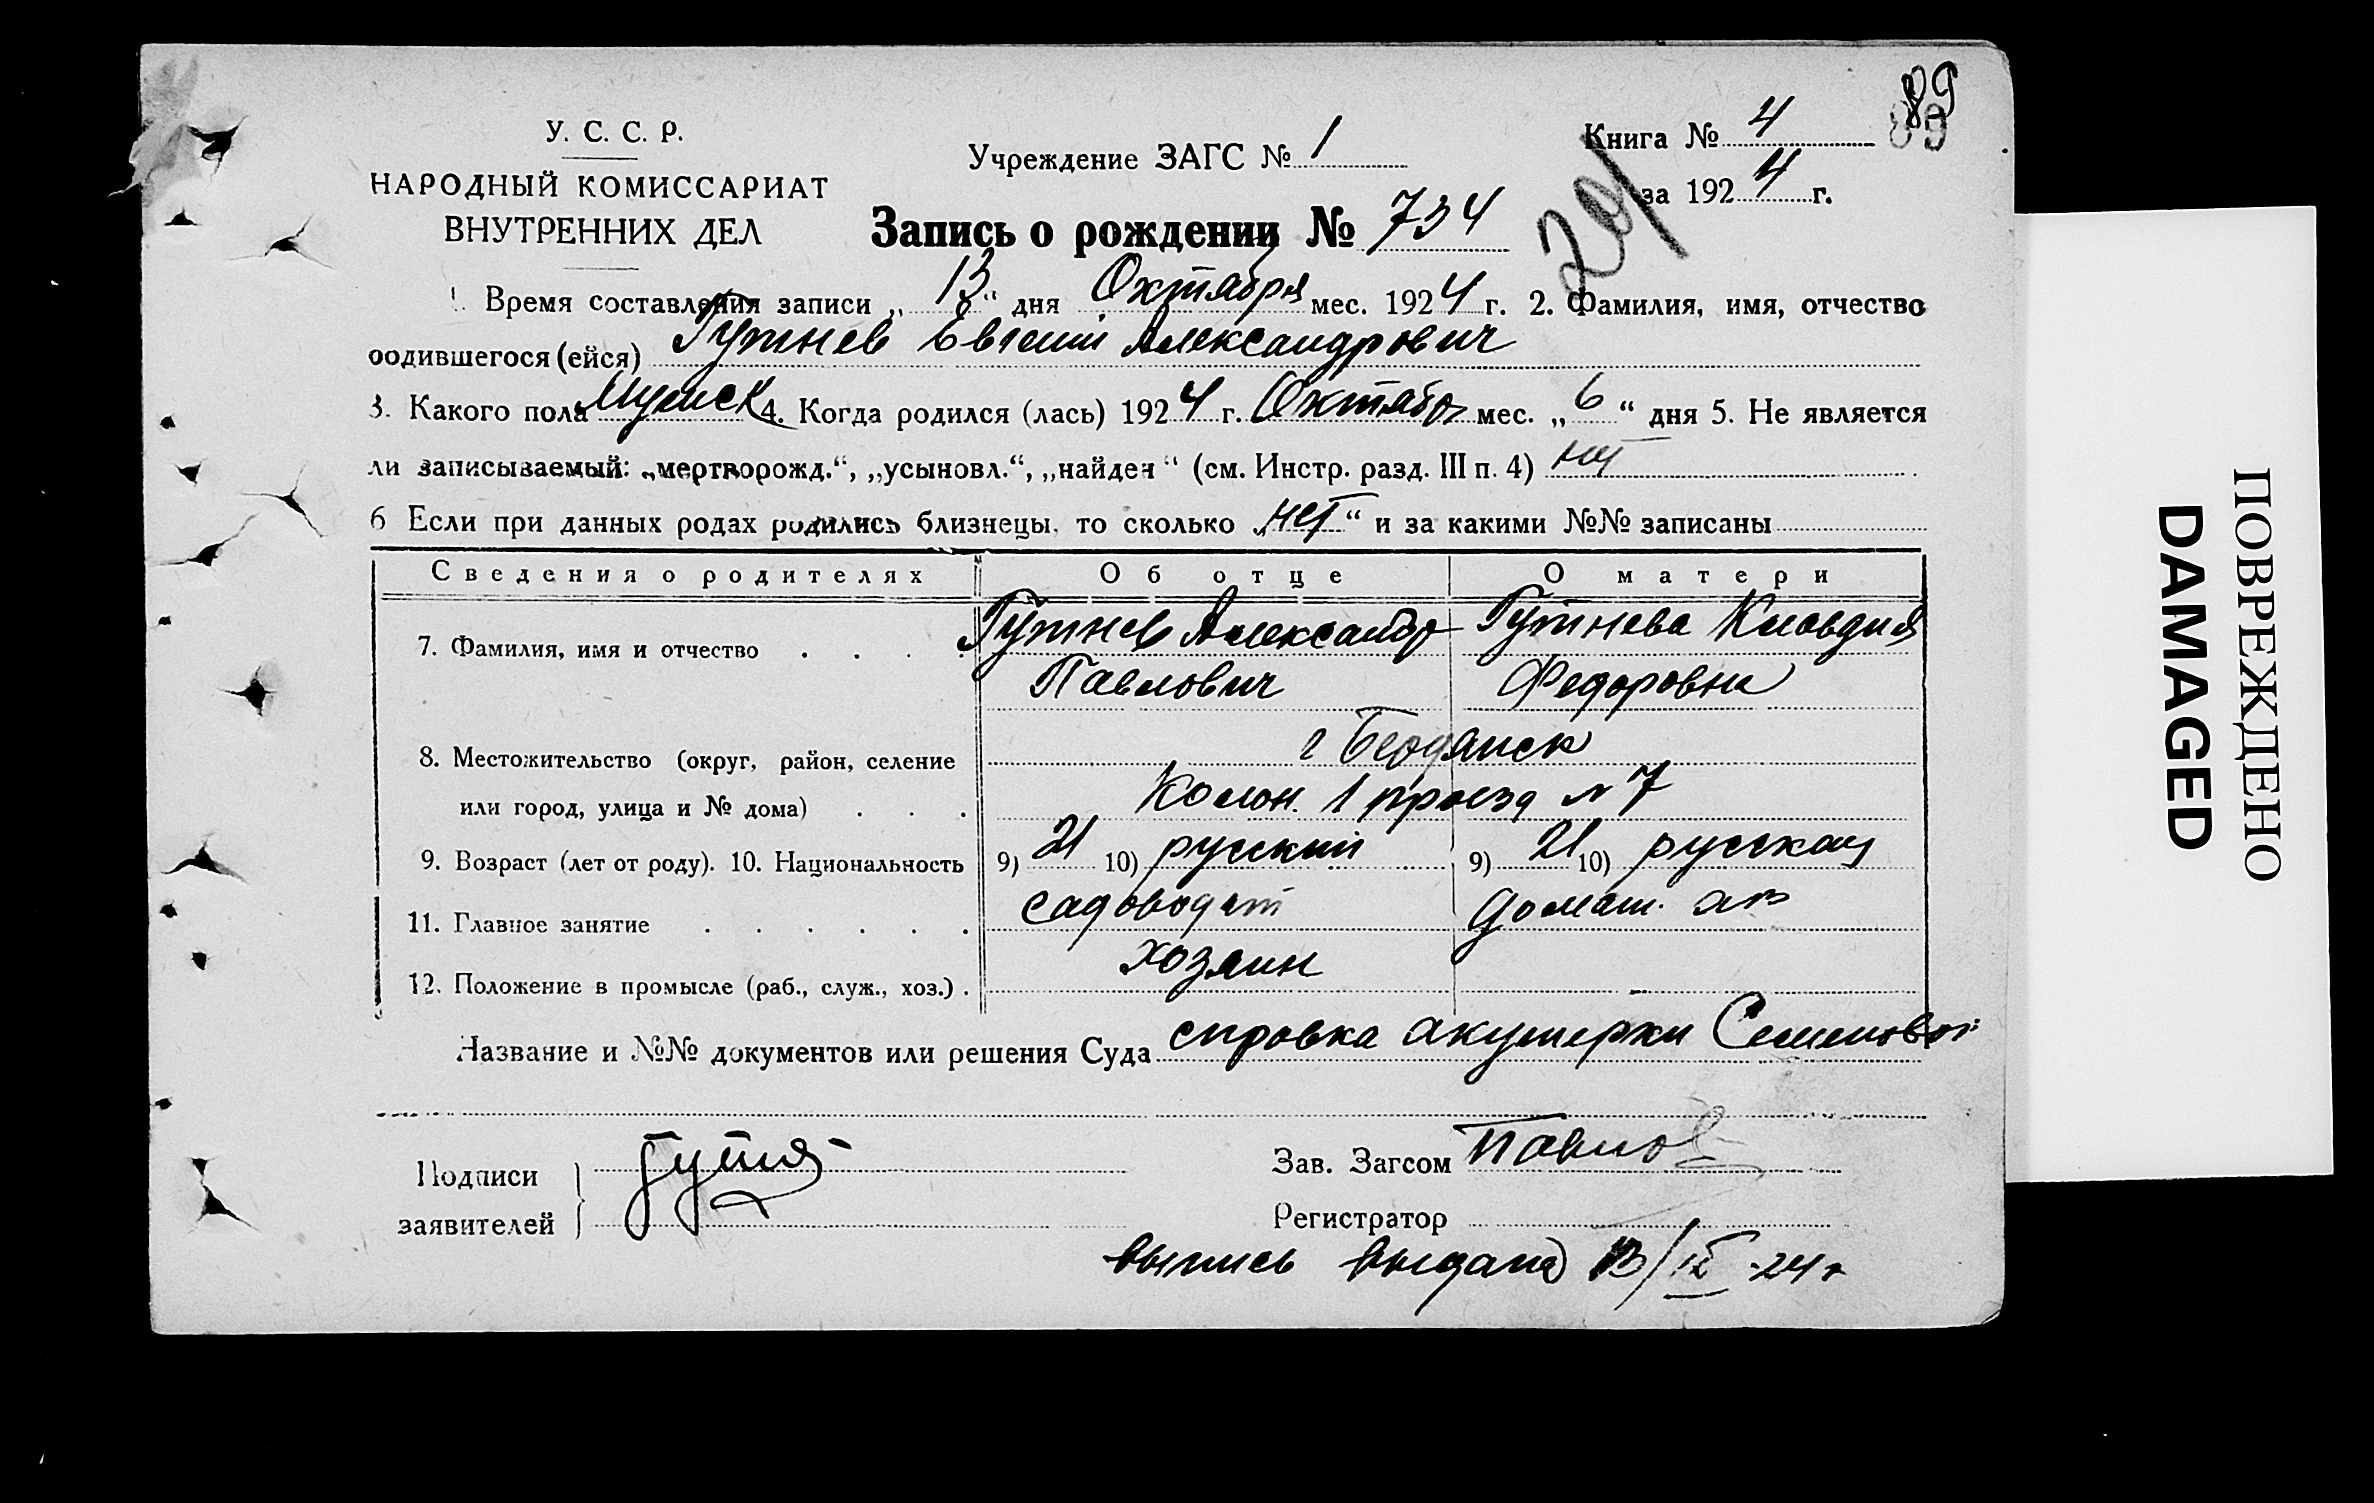 89
89
У. С. С. Р.
НАРОДНЫЙ КОМИССАРИАТ
ВНУТРЕННИХ ДЕЛ
Учреждение ЗАГС № 1
Книга № 4
за 1924 г.
Запись о рождении № 734
201
1. Время составления записи „13“ дня Октября мес. 1924 г. 2. Фамилия, имя, отчество
родившегося (ейся) Гутнев Евгений Александрович
3. Какого пола мужск 4. Когда родился (лась) 1924 г. Октябр мес. „6“ дня 5. Не является
ли записываемый: „мертворожд.“, „усыновл.“, „найден“ (см. Инстр. разд. III п. 4) нет
6 Если при данных родах родились близнецы, то сколько „нет“ и за какими №№ записаны
Сведения о родителях Об отце О матери
7. Фамилия, имя и отчество Гутнев Александр Гутнева Клавдия
Павлович Федоровна
8. Местожительство (округ, район, селение г Бердянск
или город, улица и № дома) Колон. 1 проезд № 7
9. Возраст (лет от роду). 10. Национальность 9) 21 10) русский 9) 21 10) русская
11. Главное занятие садовод домаш.
12. Положение в промысле (раб., служ., хоз.) хозяин
Название и №№ документов или решения Суда справка акушерки Семеновой
Подписи
заявителей
Зав. Загсом Павлов
Регистратор
выпись выдана 13/IX 24 г
ПОВРЕЖДЕНО
DAMAGED